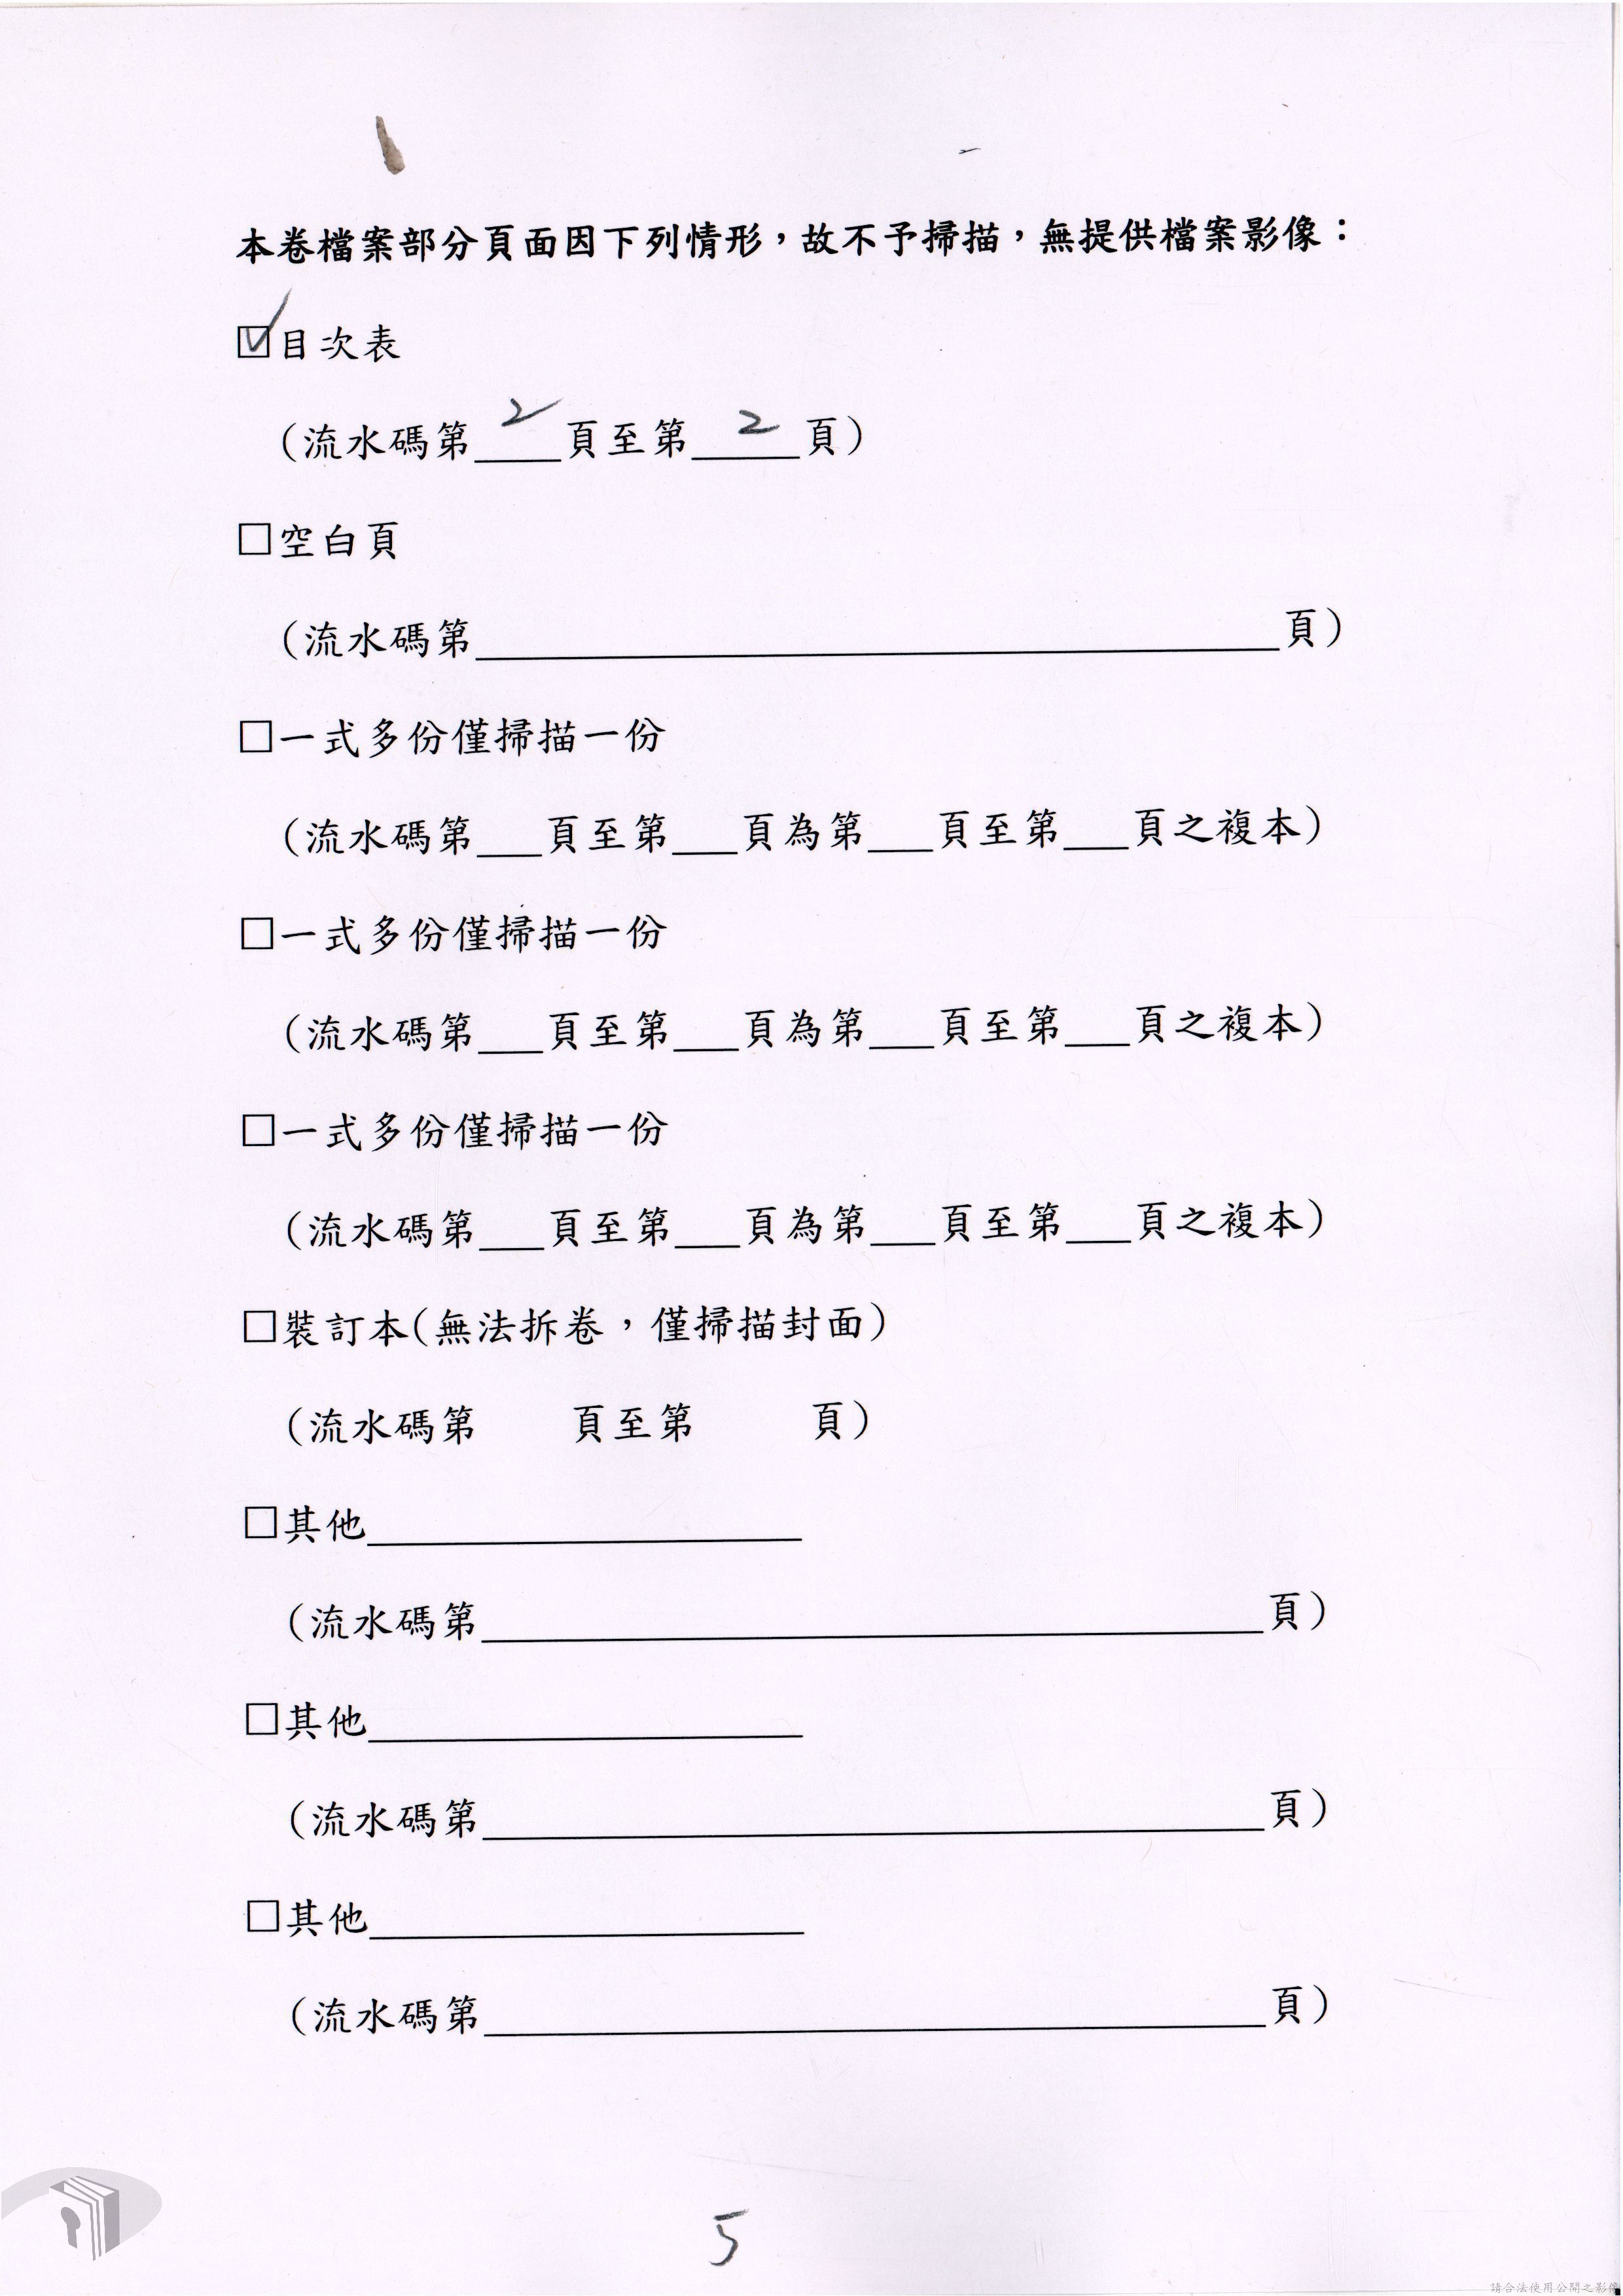 本卷檔案部分頁面因下列情形，故不予掃描，無提供檔案影像：
☑目次表
（流水碼第 2 頁至第 2 頁）
□空白頁
（流水碼第____________________頁）
□一式多份僅掃描一份
（流水碼第___頁至第___頁為第___頁至第___頁之複本）
□一式多份僅掃描一份
（流水碼第___頁至第___頁為第___頁至第___頁之複本）
□一式多份僅掃描一份
（流水碼第___頁至第___頁為第___頁至第___頁之複本）
□裝訂本（無法拆卷，僅掃描封面）
（流水碼第　　頁至第　　頁）
□其他__________
（流水碼第____________________頁）
□其他__________
（流水碼第____________________頁）
□其他__________
（流水碼第____________________頁）
5
請合法使用公開之影像